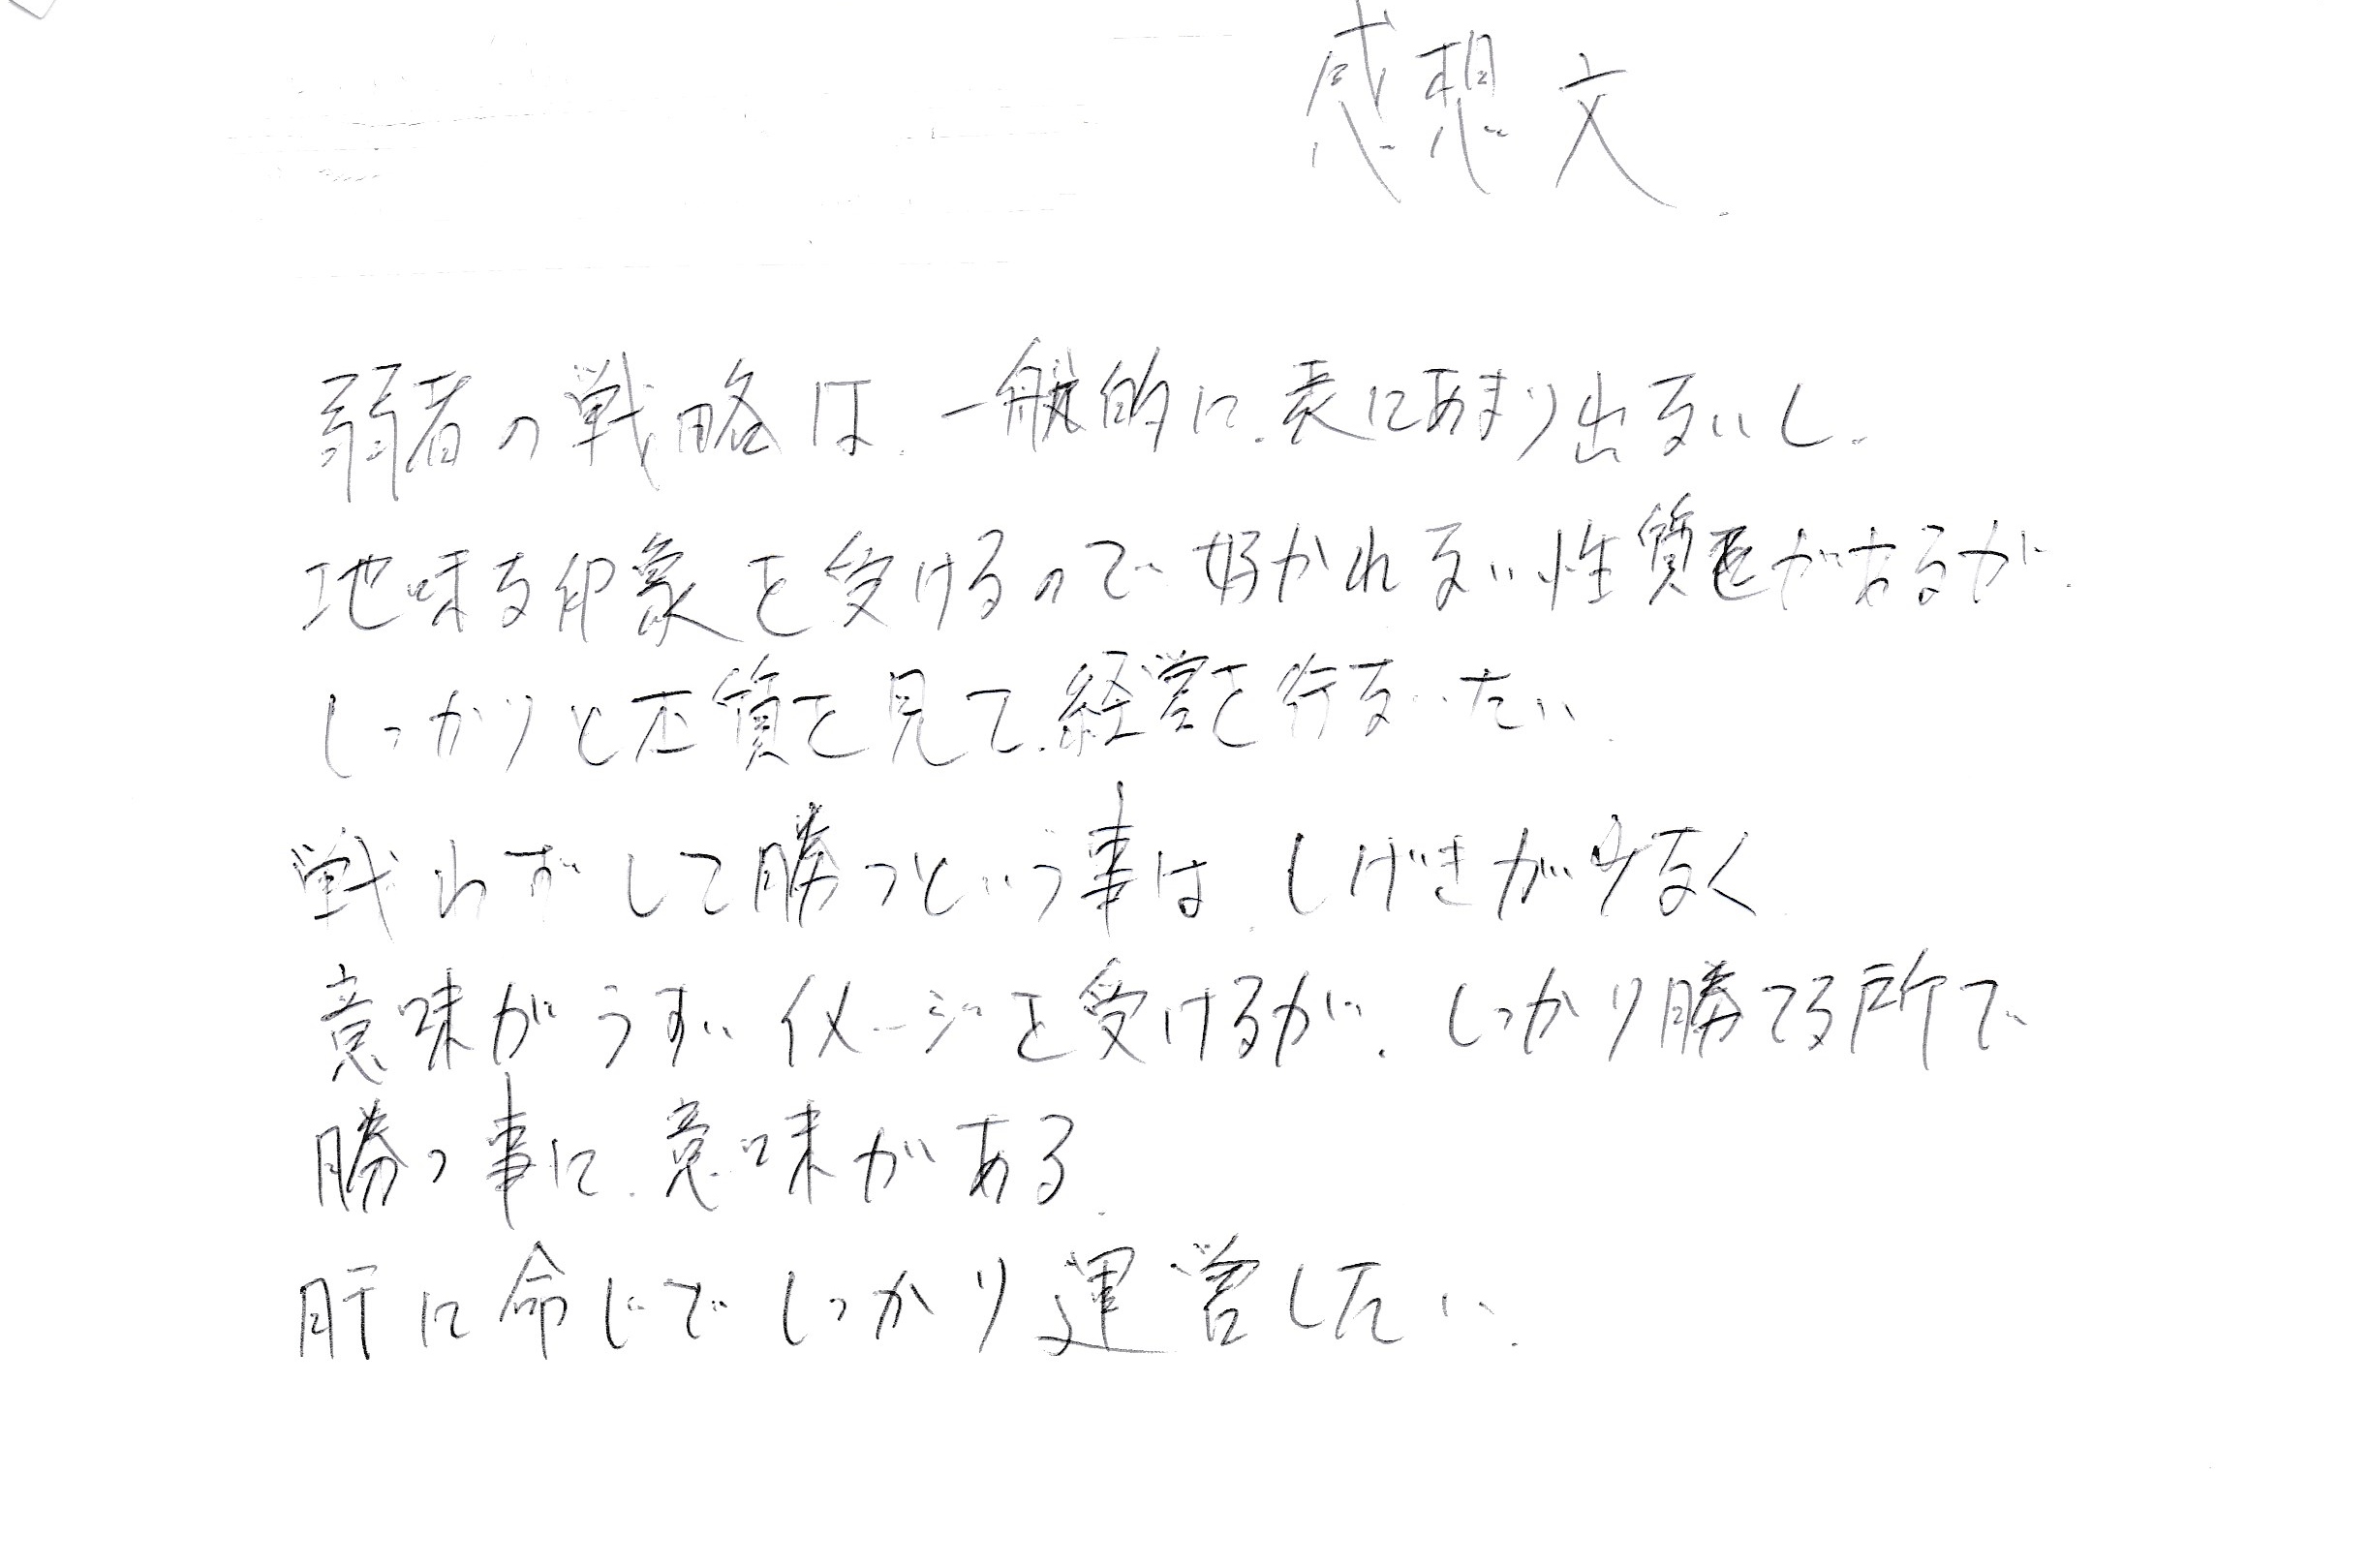 感想文
弱者の戦略は、一般的に、表にあまり出ないし、
地味な印象を受けるので好かれない性質がするが、
しっかりと本質を見て、経営を行ないたい。
戦わずして勝つという事は、しげきが少なく
意味がうすいイメージを受けるが、しっかり勝てる所で
勝つ事に、意味がある。
肝に命じてしっかり運営したい。